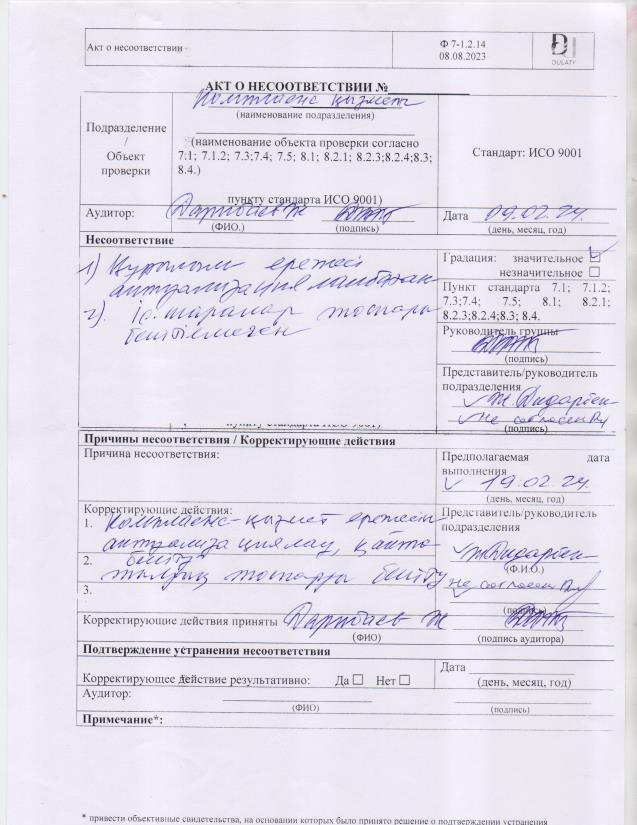 Акт о несоответствии
Ф 7-1.2.14
08.08.2023
DULATY
АКТ О НЕСООТВЕТСТВИИ №
Комплаенс қызметі
(наименование подразделения)
Подразделение
/
Объект
проверки
(наименование объекта проверки согласно
7.1; 7.1.2; 7.3;7.4; 7.5; 8.1; 8.2.1; 8.2.3;8.2.4;8.3;
8.4.)
пункту стандарта ИСО 9001)
Стандарт: ИСО 9001
Аудитор:
(ФИО.)
(подпись)
Дата 09.02.24.
(день, месяц, год)
Несоответствие
1) Құрылым ережесі
актуализацияланбаған
2). Іс-шаралар жоспары
бекітілмеген
Градация: значительное
незначительное
Пункт стандарта 7.1; 7.1.2;
7.3;7.4; 7.5; 8.1; 8.2.1;
8.2.3;8.2.4;8.3; 8.4.
Руководитель группы
(подпись)
Представитель/руководитель
подразделения
Не согласен
(подпись)
пункту стандарта ИСО 9001)
Причины несоответствия / Корректирующие действия
Причина несоответствия:
Предполагаемая дата
выполнения
19.02.24.
(день, месяц, год)
Корректирующие действия:
1. Комплаенс-қызмет ережесін
актуализациялау, қайта
2. бекіту
жылдық жоспарды бекіту
3.
Представитель/руководитель
подразделения
(Ф.И.О.)
не согласен
(подпись)
Корректирующие действия приняты
(ФИО)
(подпись аудитора)
Подтверждение устранения несоответствия
Корректирующее действие результативно: Да Нет
Дата
(день, месяц, год)
Аудитор:
(ФИО)
(подпись)
Примечание*:
* привести объективные свидетельства, на основании которых было принято решение о подтверждении устранения